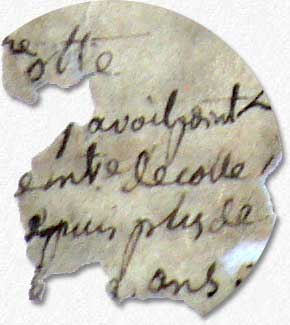 re
otte
avoit point
ente decolle
epuis plus de
ans.